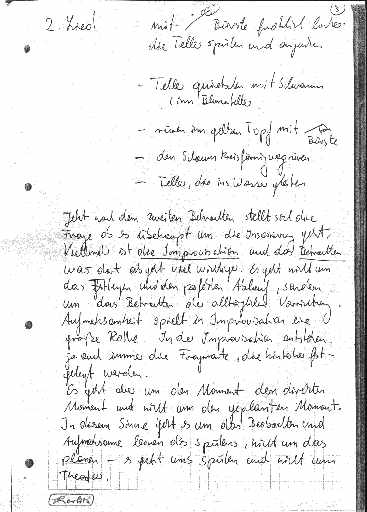 3
2. Lied! mit Bürste fröhlich
die Teller spülen und
- Teller quietschen mit Schwamm
(im Blumenteller
- rühren im gelben Topf mit
Bürste
- den Schaum kreisförmig
- Teller, die ins Wasser gleiten
Jetzt nach dem zweiten Betrachten stellt sich die
Frage ob es überhaupt um die Inszenierung geht.
Vielmehr ist die Improvisation und das Betrachten
was dort abgeht viel wichtiger. Es geht nicht um
das Festlegen und den perfekten Ablauf, sondern
um das Betrachten der alltäglichen Verrichtung.
Aufmerksamkeit spielt in Improvisation eine
große Rolle. In der Improvisation entstehen
ja auch immer die Fragmente, die hinterher fest-
gelegt werden.
Es geht aber um den Moment dem direkten
Moment und nicht um den geplanten Moment.
In diesem Sinne geht es um das Beobachten und
Aufmerksame lernen des spülens, nicht um das
planen - es geht ums spülen und nicht um
Theater.